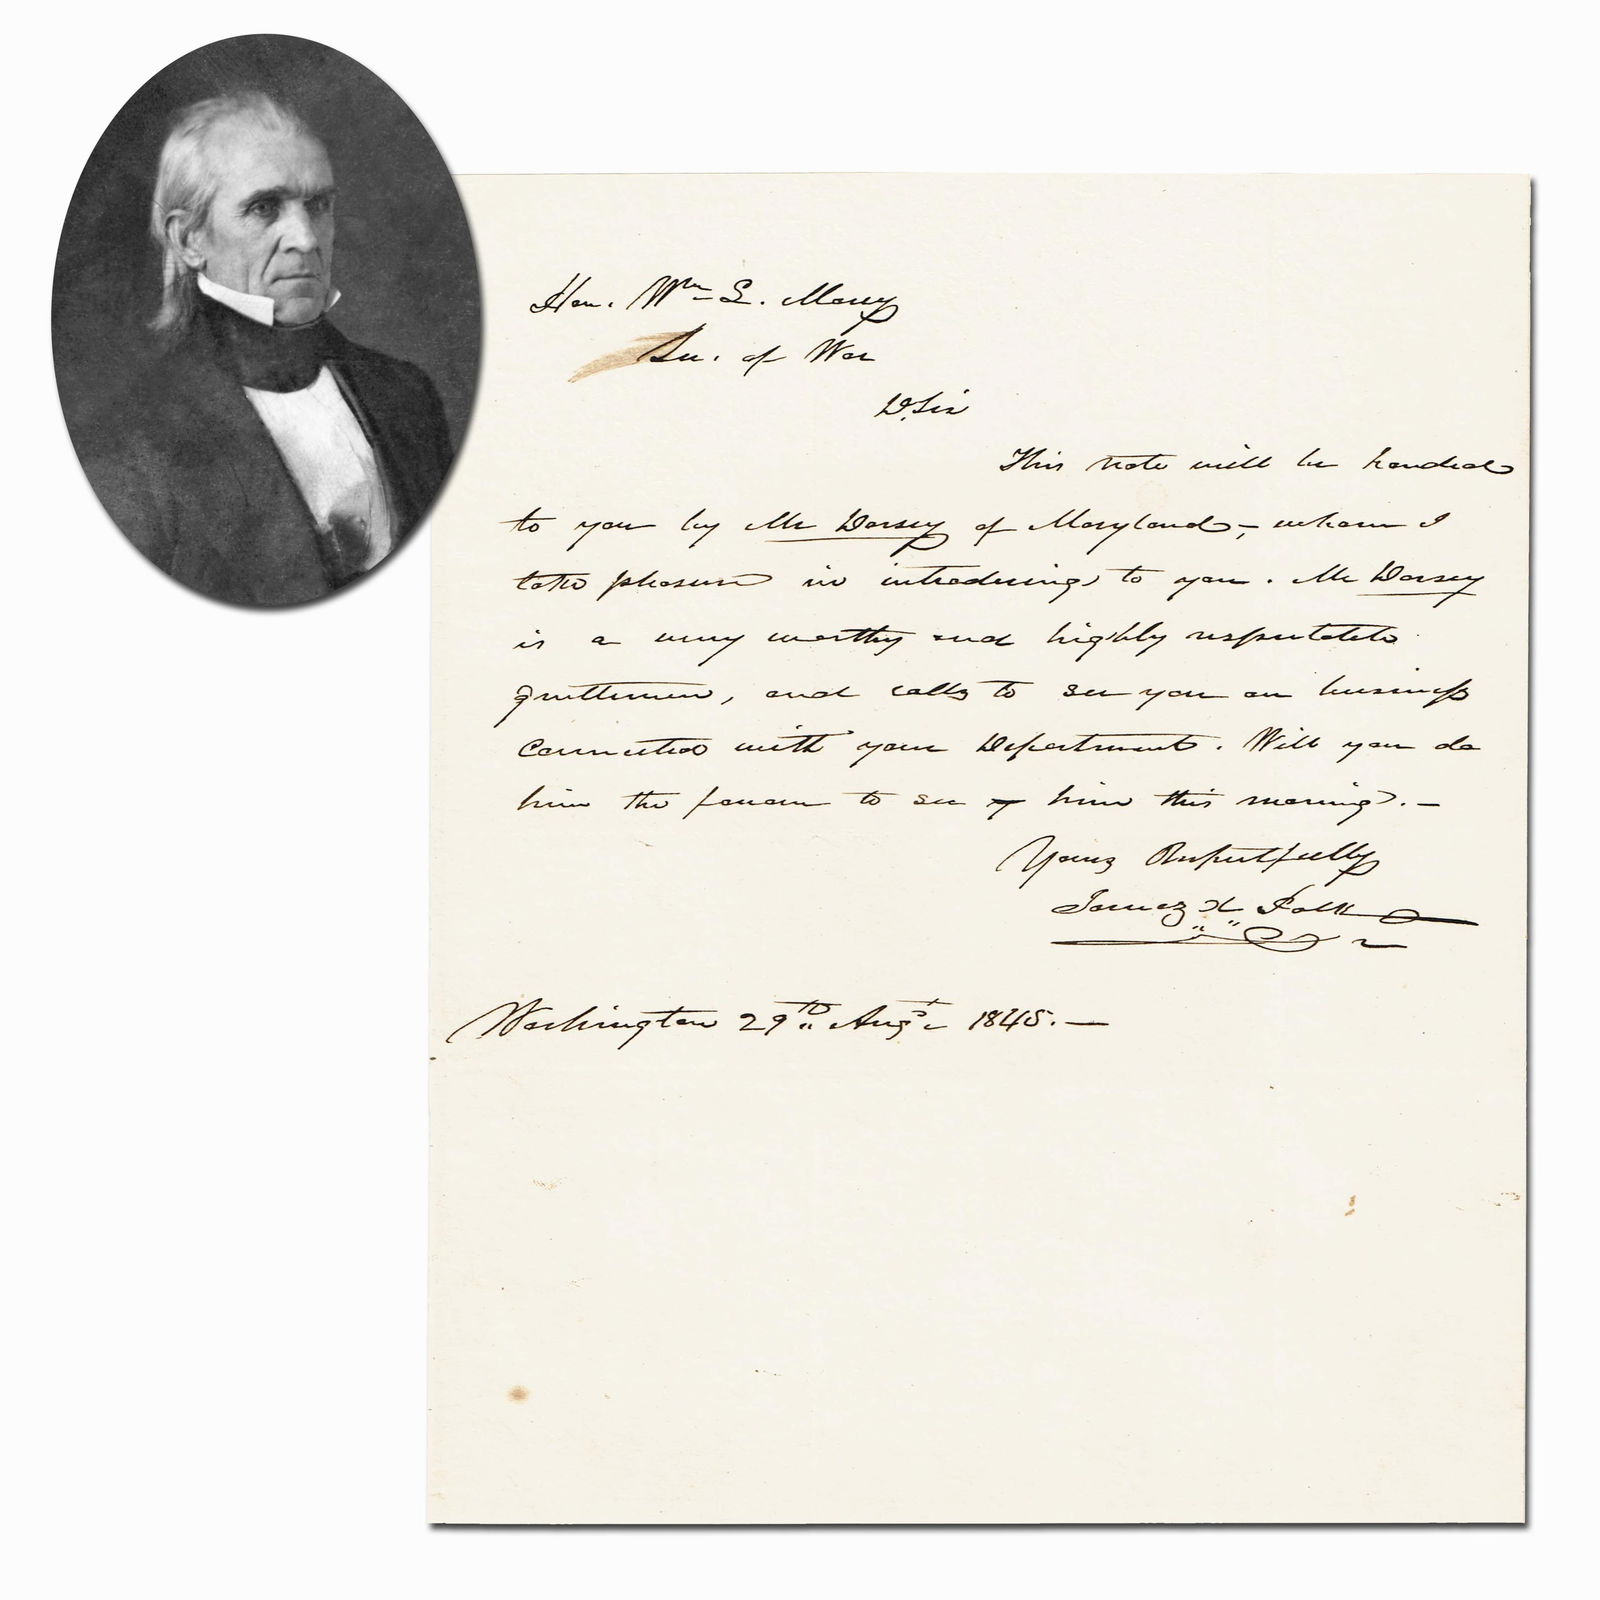 Hon. Wm L. Marcy
Sec. of War
D. Sir
This note will be handed
to you by Mr Dorsey of Maryland, whom I
take pleasure in introducing to you. Mr Dorsey
is a very worthy and highly respectable
gentleman, and calls to see you on business
connected with your Department. Will you do
him the favour to see him this morning. —
Yours Respectfully
James K Polk
Washington 29th Augt 1845. —